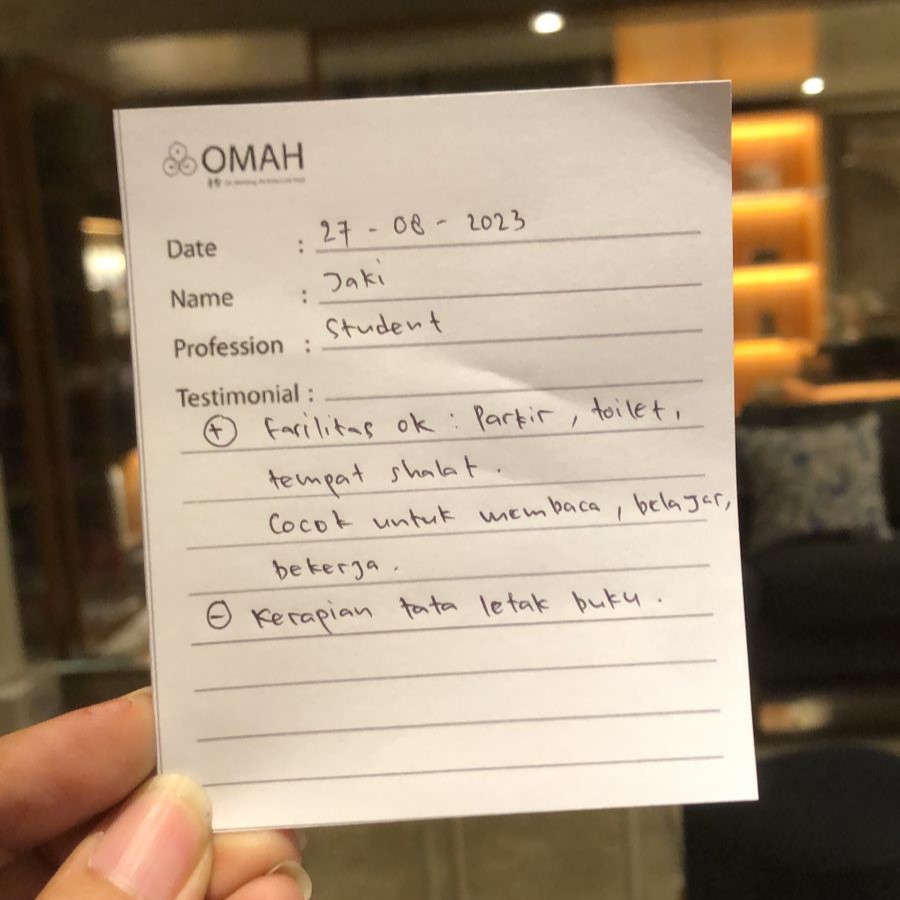 OMAH
Date : 27 - 08 - 2023
Name : Jaki
Profession : Student
Testimonial :
⊕ Fasilitas ok : Parkir, toilet,
tempat shalat.
Cocok untuk membaca, belajar,
bekerja.
⊖ Kerapian tata letak buku.